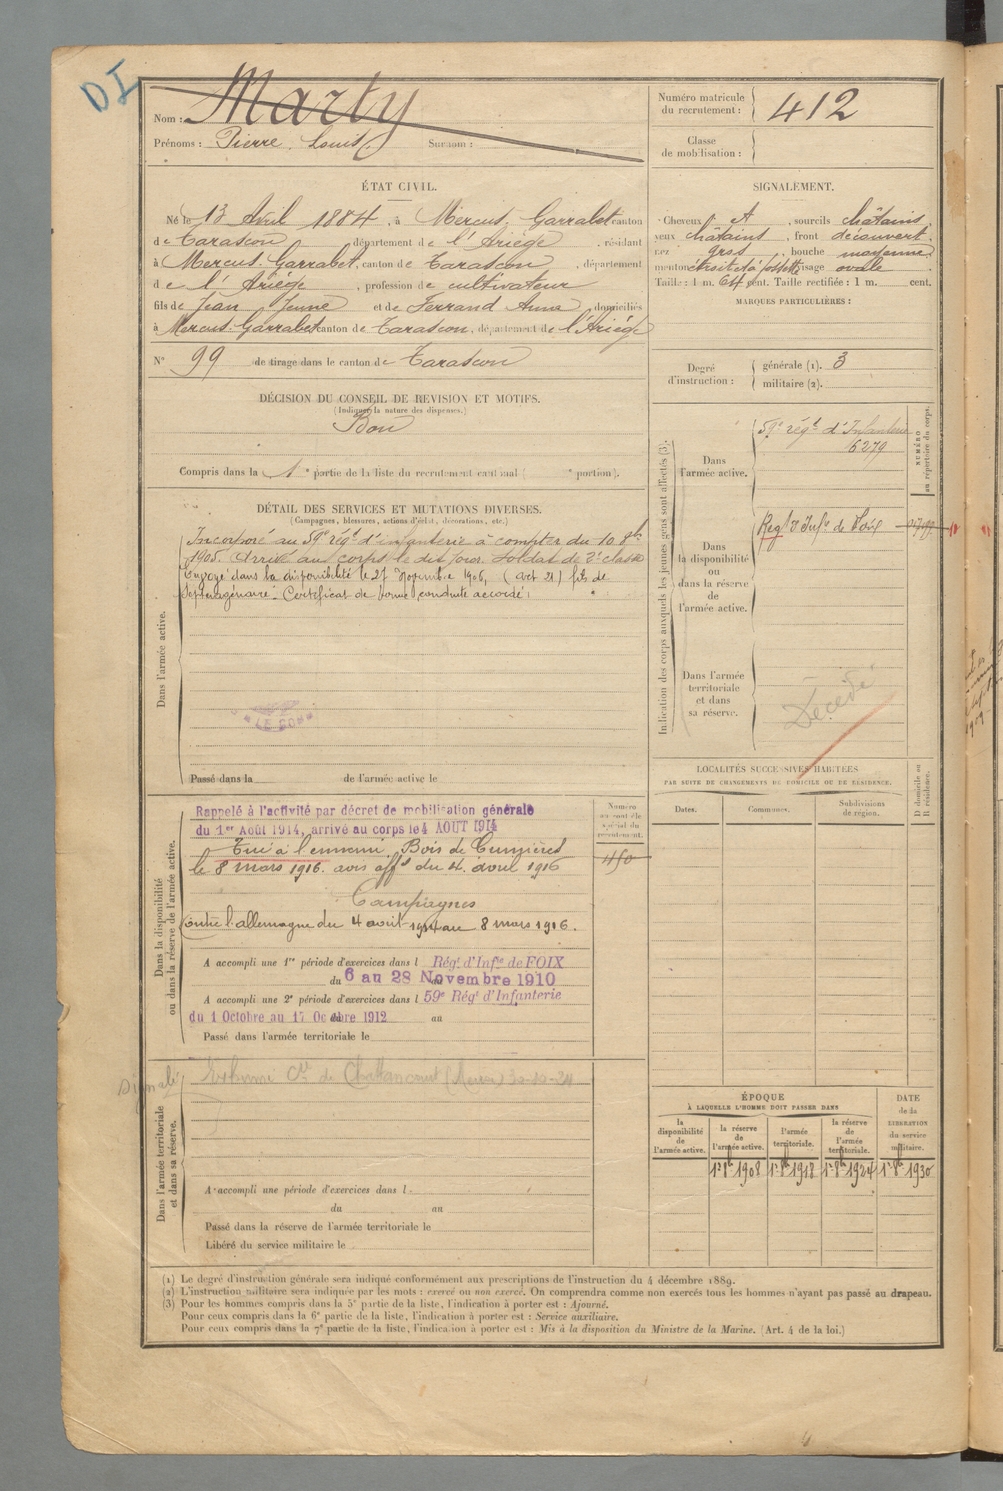 DI
Nom : Marty
Prénoms : Pierre Louis Surnom :
Numéro matricule
du recrutement : 412
Classe
de mobilisation :
ÉTAT CIVIL.
Né le 13 Avril 1884, à Mercus-Garrabet canton
de Tarascon, département de l'Ariège, résidant
à Mercus-Garrabet, canton de Tarascon, département
de l'Ariège, profession de cultivateur
fils de Jean Jeune et de Ferrand Anna, domiciliés
à Mercus-Garrabet canton de Tarascon, département de l'Ariège
N° 99 de tirage dans le canton de Tarascon
SIGNALEMENT.
Cheveux A, sourcils châtains,
yeux châtains, front découvert,
nez gros, bouche moyenne,
menton étroit et à fossette, visage ovale
Taille : 1 m. 64 cent. Taille rectifiée : 1 m. cent.
MARQUES PARTICULIÈRES :
Degré
d'instruction :
générale (1). 3
militaire (2).
DÉCISION DU CONSEIL DE REVISION ET MOTIFS.
(Indiquer la nature des dispenses.)
Bon
Compris dans la 1e partie de la liste du recrutement cantonal ( e portion).
DÉTAIL DES SERVICES ET MUTATIONS DIVERSES.
(Campagnes, blessures, actions d'éclat, décorations, etc.)
Dans l'armée active.
Incorporé au 59e régt d'infanterie à compter du 10 8bre
1905. Arrivé au corps le dit jour. Soldat de 2e classe
Envoyé dans la disponibilité le 27 Novembre 1906, (art 21) fils de
Septuagénaire - Certificat de bonne conduite accordé.
Passé dans la de l'armée active le
Indication des corps auxquels les jeunes gens sont affectés (3).
NUMÉRO
au répertoire du corps.
Dans
l'armée active.
59e régt d'Infanterie
6279
Dans
la disponibilité
ou
dans la réserve
de
l'armée active.
Regt d'Infie de Foix
Dans l'armée
territoriale
et dans
sa réserve.
Décédé
Dans la disponibilité
ou dans la réserve de l'armée active.
Numéro
au contrôle
spécial du
recrutement.
450
Rappelé à l'activité par décret de mobilisation générale
du 1er Août 1914, arrivé au corps le 4 AOUT 1914
Tué à l'ennemi Bois de Cumières
le 8 mars 1916. avis offel du 4 avril 1916
Campagnes
Contre l'allemagne du 4 août 1914 au 8 mars 1916.
A accompli une 1re période d'exercices dans l Régt d'Infie de FOIX
du 6 au 28 Novembre 1910
A accompli une 2e période d'exercices dans l 59e Régt d'Infanterie
du 1 Octobre au 17 Octobre 1912 au
Passé dans l'armée territoriale le
LOCALITÉS SUCCESSIVES HABITÉES
PAR SUITE DE CHANGEMENTS DE DOMICILE OU DE RÉSIDENCE.
Dates.
Communes.
Subdivisions
de région.
D domicile ou
R résidence.
Signalé
Dans l'armée territoriale
et dans sa réserve.
Inhumé Cre de Chattancourt (Meuse) 30-10-24
A accompli une période d'exercices dans l
du au
Passé dans la réserve de l'armée territoriale le
Libéré du service militaire le
ÉPOQUE
À LAQUELLE L'HOMME DOIT PASSER DANS
la
disponibilité
de
l'armée active.
la réserve
de
l'armée active.
l'armée
territoriale.
la réserve
de
l'armée
territoriale.
DATE
de la
LIBÉRATION
du service
militaire.
1er 8bre 1908 1er 8bre 1918 1er 8bre 1924 1er 8bre 1930
(1) Le degré d'instruction générale sera indiqué conformément aux prescriptions de l'instruction du 4 décembre 1889.
(2) L'instruction militaire sera indiquée par les mots : exercé ou non exercé. On comprendra comme non exercés tous les hommes n'ayant pas passé au drapeau.
(3) Pour les hommes compris dans la 5e partie de la liste, l'indication à porter est : Ajourné.
Pour ceux compris dans la 6e partie de la liste, l'indication à porter est : Service auxiliaire.
Pour ceux compris dans la 7e partie de la liste, l'indication à porter est : Mis à la disposition du Ministre de la Marine. (Art. 4 de la loi.)